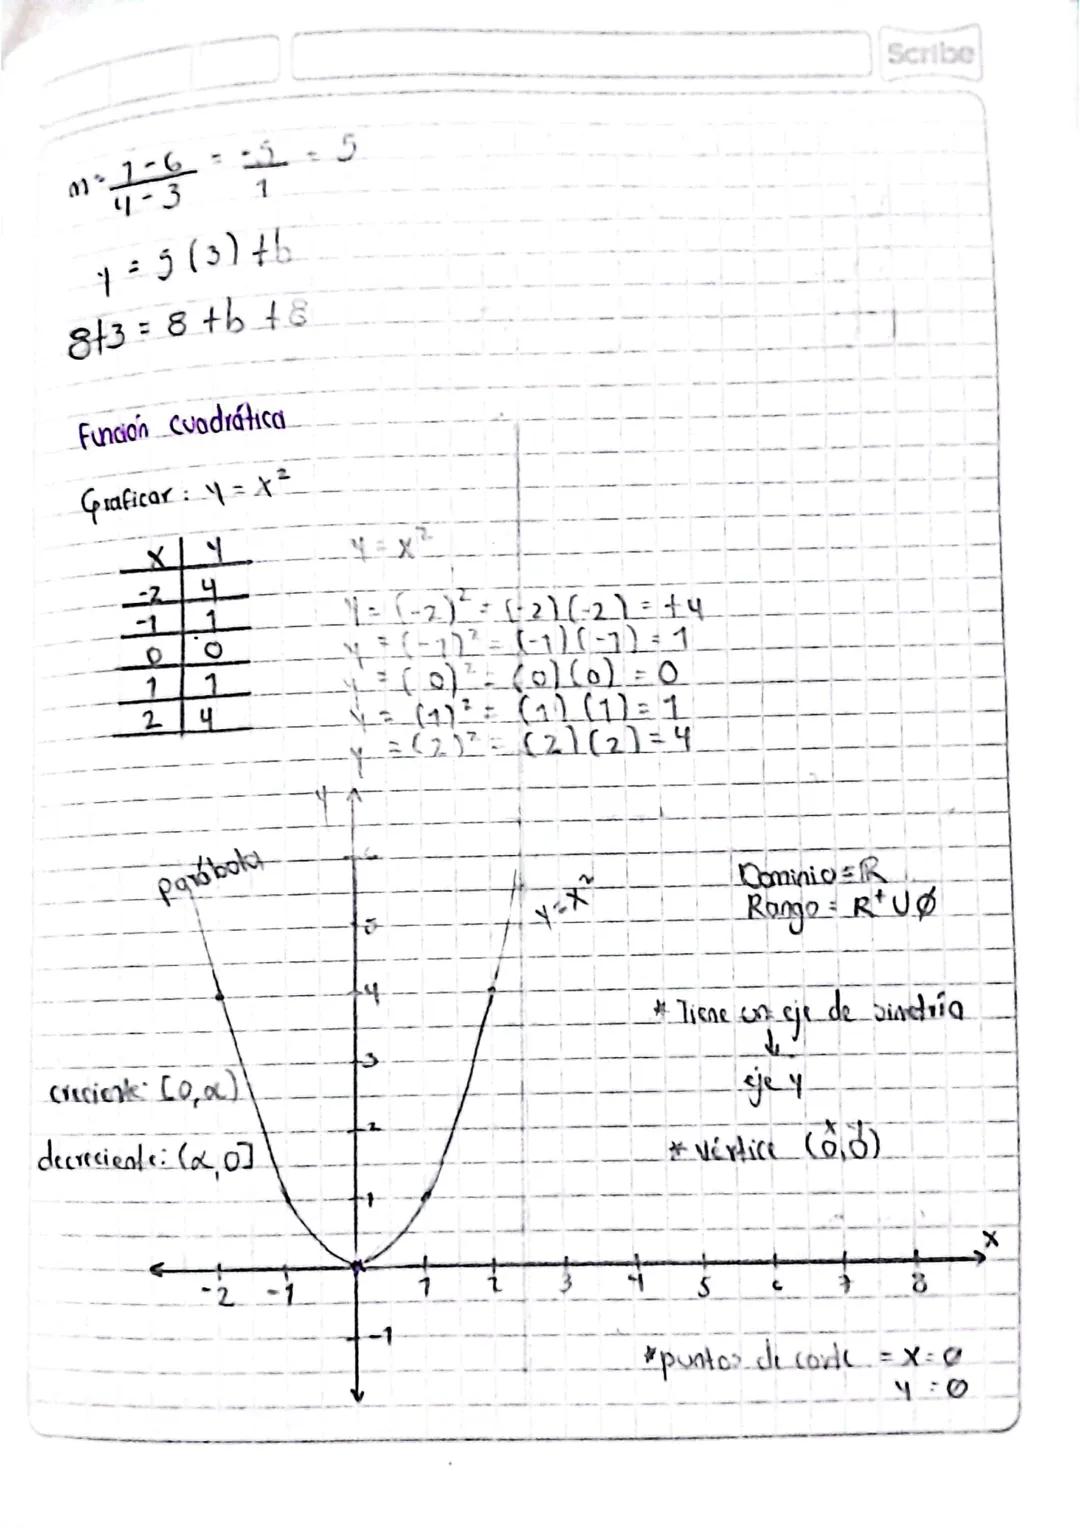 Scribe
m = 1-6 / 4-3 = -5 / 1 = 5
y = 5(3) +b
8+3 = 8 +b +8
Función Cuadrática
Graficar: y = x²
x | y
-2 | 4
-1 | 1
0 | 0
1 | 1
2 | 4
y = x²
y = (-2)² = (-2)(-2) = +4
y = (-1)² = (-1)(-1) = 1
y = (0)² = (0)(0) = 0
y = (1)² = (1)(1) = 1
y = (2)² = (2)(2) = 4
y
parábola
y=x²
Dominio = R
Rango = R⁺ U Ø
6
5
4
3
2
1
* Tiene un eje de simetría
↓
eje y
creciente: [0,α)
decreciente: (α,0]
* Vértice (0,0)
x y
x
-2 -1 1 2 3 4 5 6 7 8
-1
*puntos de corte = x=0
y=0